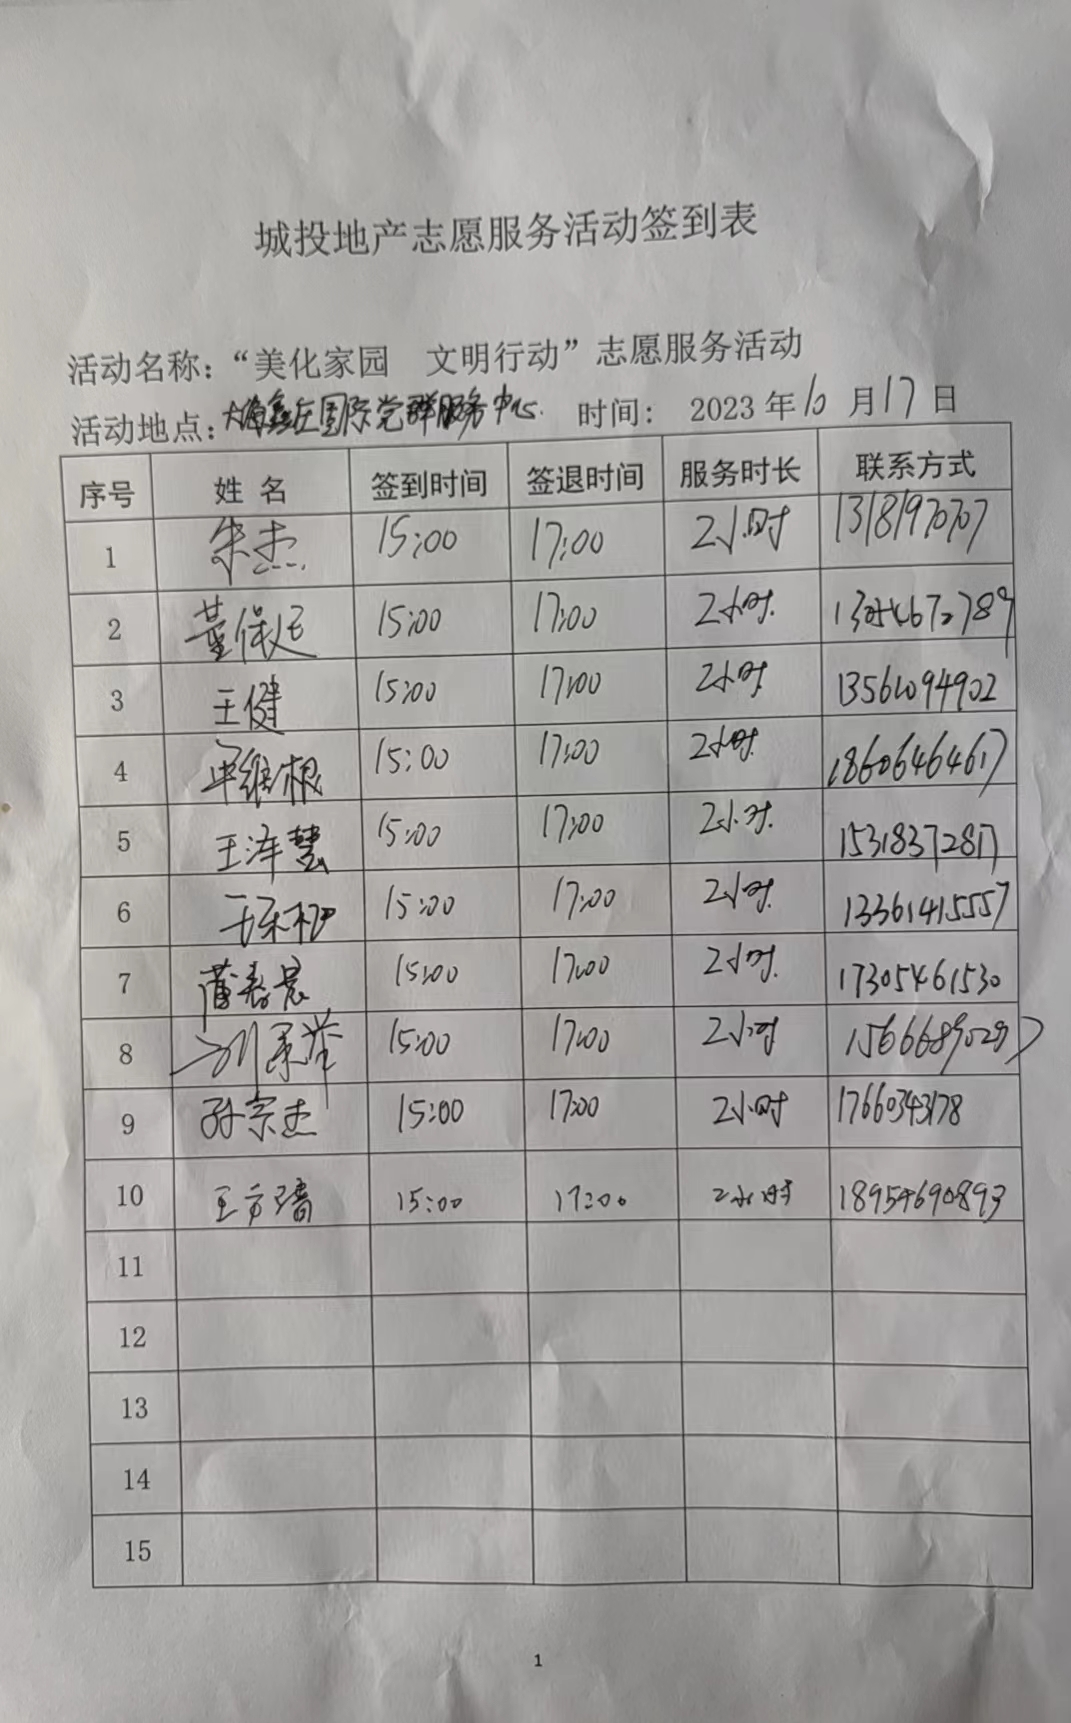 城投地产志愿服务活动签到表
活动名称：“美化家园 文明行动”志愿服务活动
活动地点： 国际党群服务中心 时间： 2023年10月17日
序号 姓名 签到时间 签退时间 服务时长 联系方式
1 朱杰 15:00 17:00 2小时 13181970707
2 15:00 17:00 2小时
3 王健 15:00 17:00 2小时 13561094902
4 15:00 17:00 2小时 18606464617
5 王泽慧 15:00 17:00 2小时 15318372817
6 15:00 17:00 2小时 13361415557
7 15:00 17:00 2小时 17305461530
8 15:00 17:00 2小时
9 孙宗杰 15:00 17:00 2小时 17660343178
10 15:00 17:00 2小时 18954690893
11
12
13
14
15
1